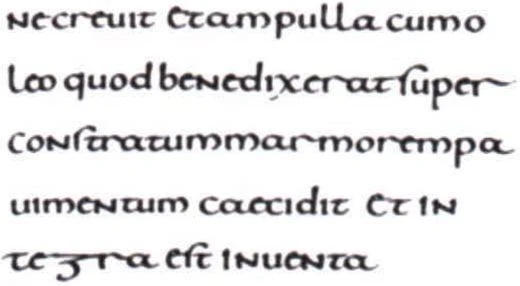 necreuit etampulla cumo
leo quod benedixerat super
constratummarmorempa
uimentum caecidit et in
tegra est inuenta